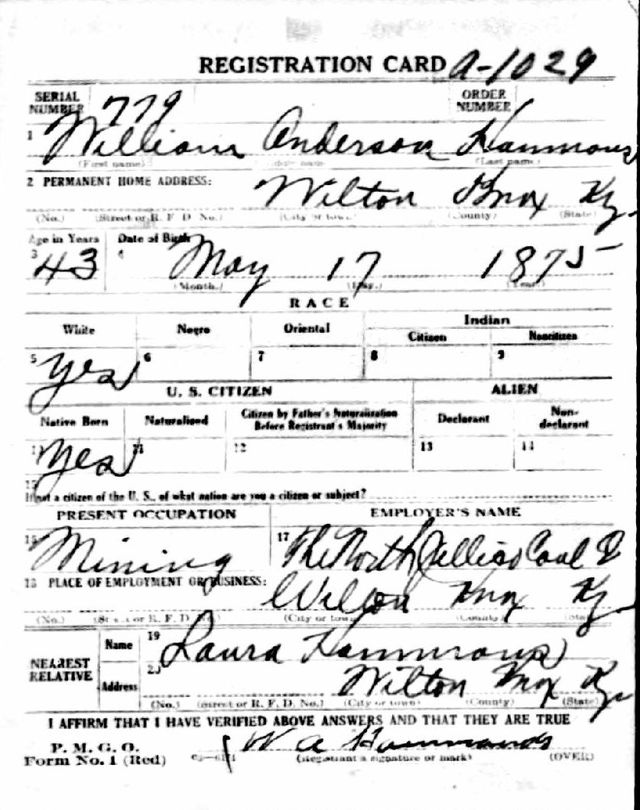 REGISTRATION CARD A-1029
SERIAL NUMBER 779 ORDER NUMBER
1 William Anderson Hammons
(First name) (Last name)
2 PERMANENT HOME ADDRESS: Wilton Knox Ky.
(No.) (Street or R. F. D. No.) (City or town) (County) (State)
Age in Years Date of Birth
3 43 4 May 17 1875
(Month.) (Day.) (Year.)
RACE
White Negro Oriental Indian
Citizen Noncitizen
5 Yes 6 7 8 9
U. S. CITIZEN ALIEN
Native Born Naturalized Citizen by Father's Naturalization Before Registrant's Majority Declarant Non-declarant
Yes 11 12 13 14
If not a citizen of the U. S., of what nation are you a citizen or subject?
PRESENT OCCUPATION EMPLOYER'S NAME
16 Mining 17 The North Jellico Coal
18 PLACE OF EMPLOYMENT OR BUSINESS: Wilton Knox Ky
(No.) (Street or R. F. D. No.) (City or town) (County) (State)
NEAREST RELATIVE
Name 19 Laura Hammons
Address 20 Wilton Knox Ky
(No.) (Street or R. F. D. No.) (City or town) (County) (State)
I AFFIRM THAT I HAVE VERIFIED ABOVE ANSWERS AND THAT THEY ARE TRUE
P. M. G. O.
Form No. 1 (Red) W A Hammonds
(Registrant's signature or mark) (OVER)